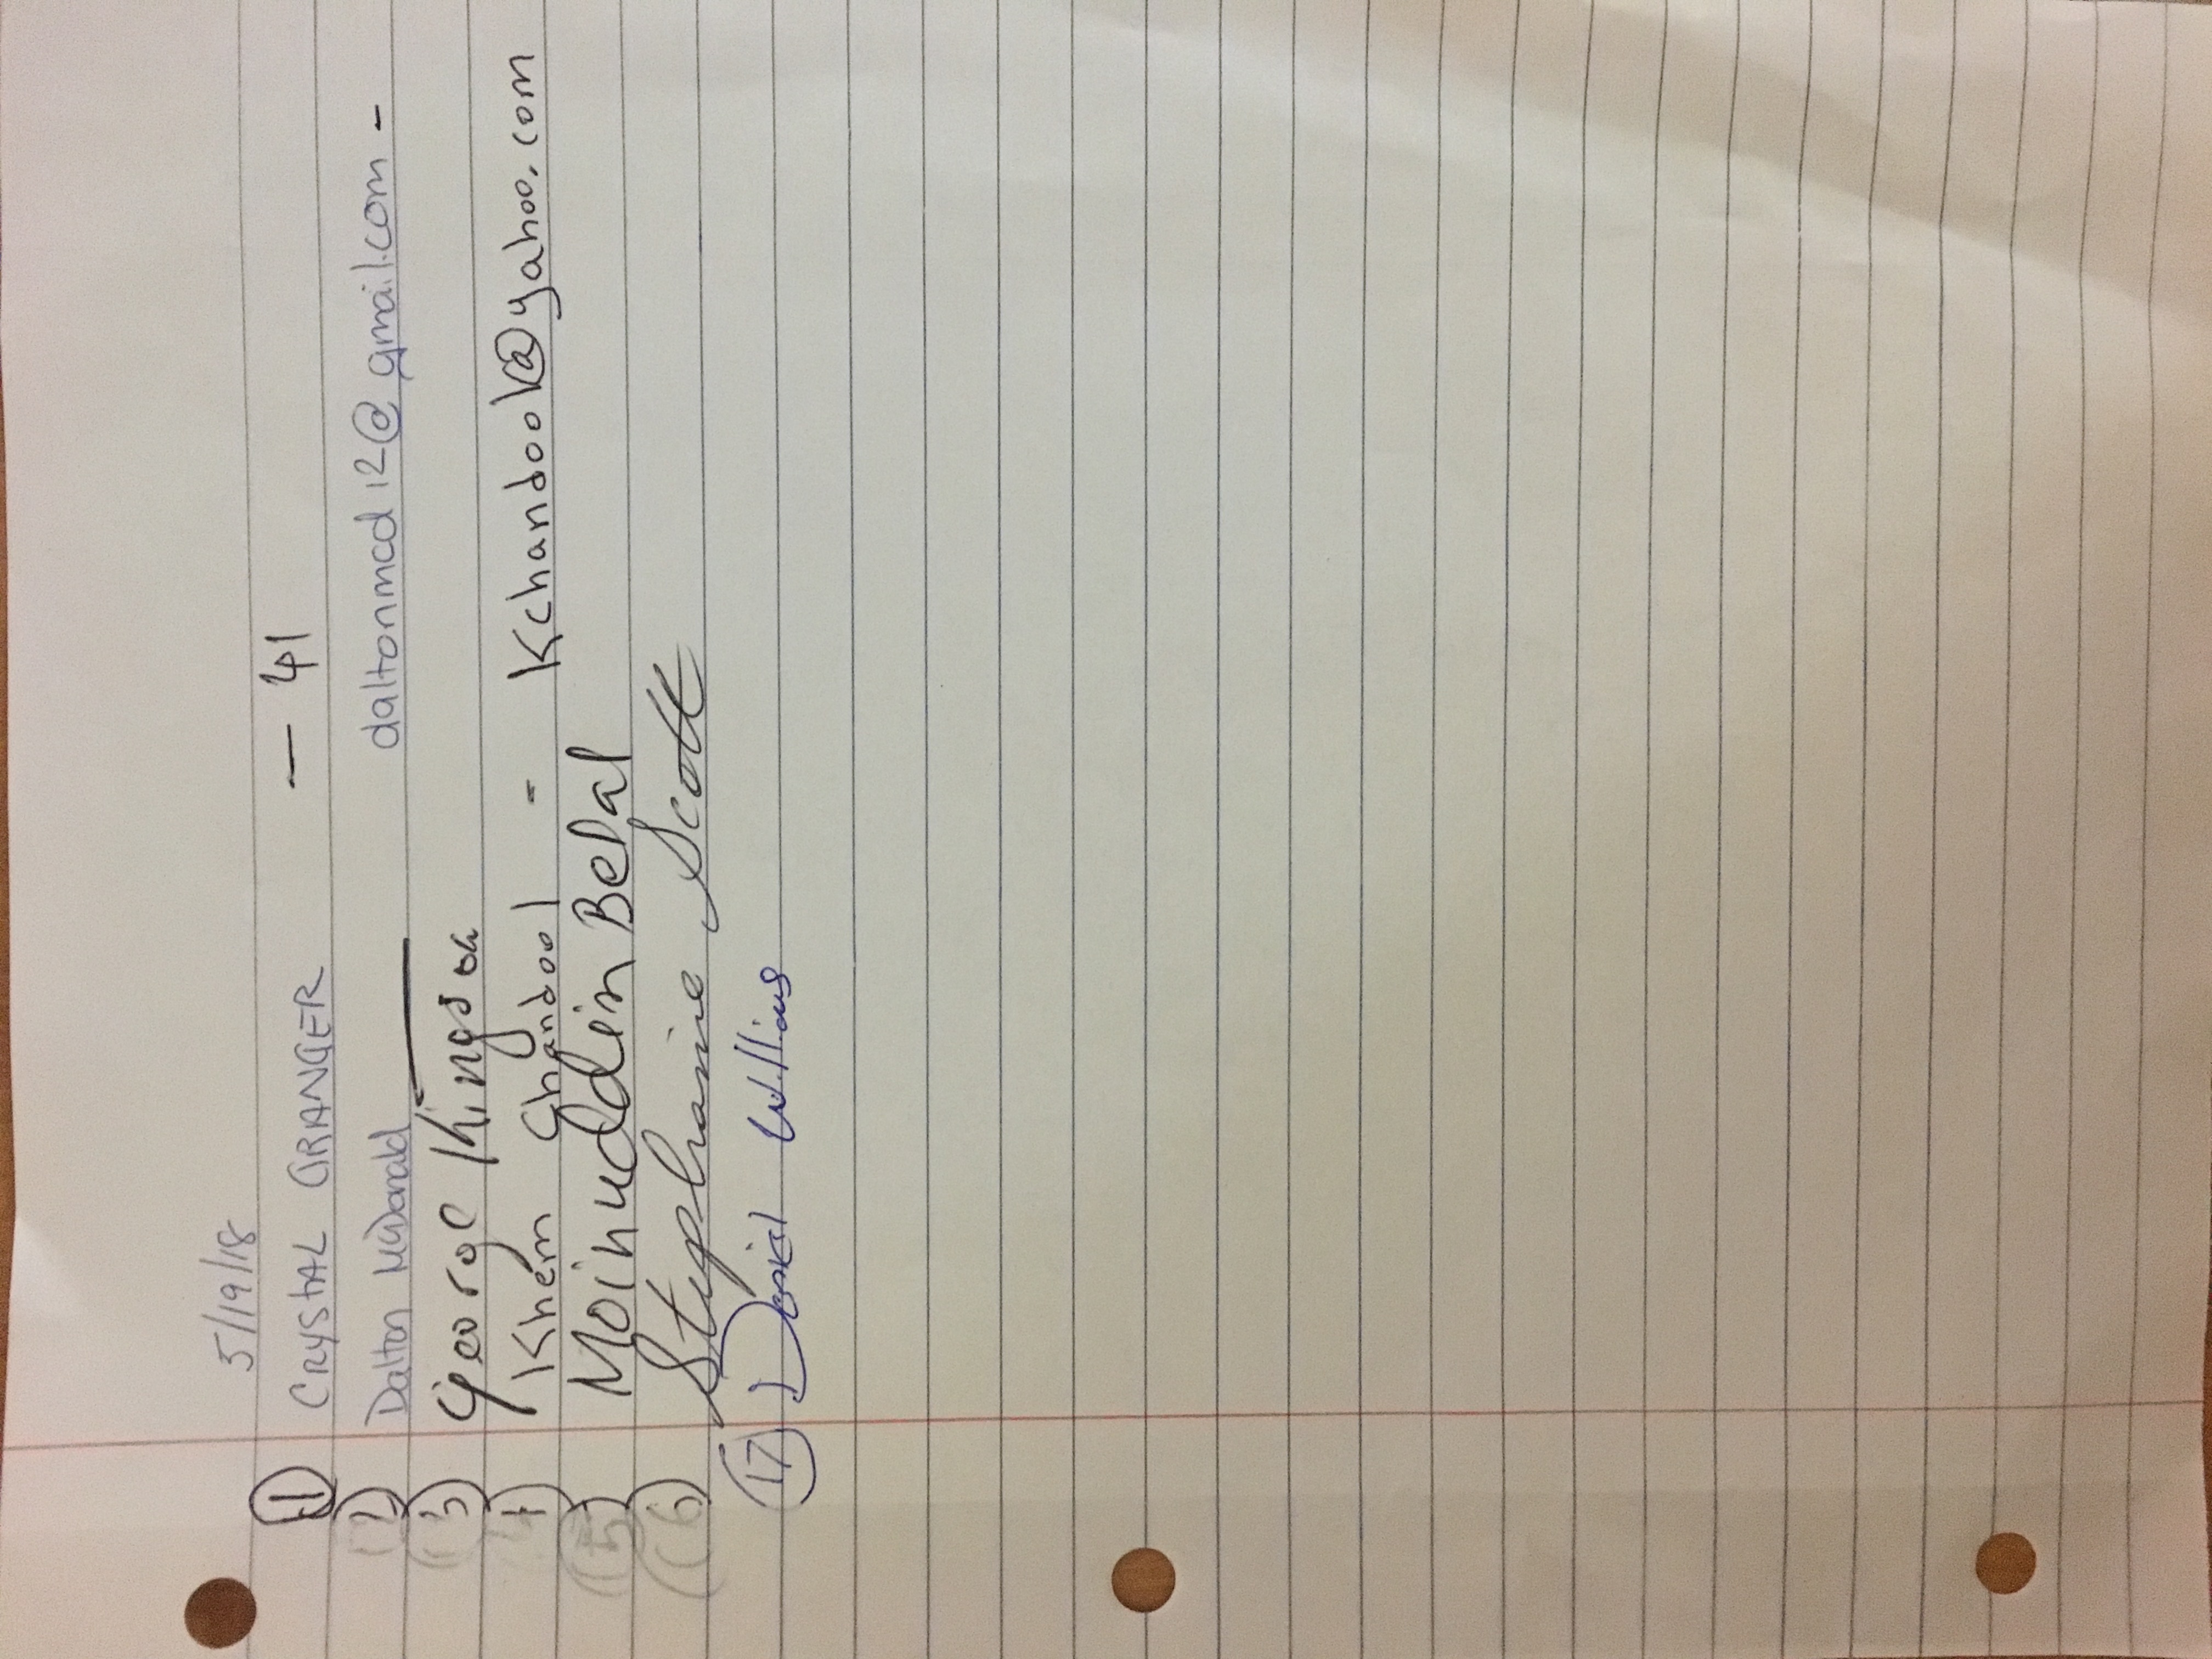 5/19/18
1 CRYSTAL GRANGER — 41
2 Dalton McDonald daltonmcd12@gmail.com -
3 George Kingsoa
4 Khem Chandool - Kchandook@yahoo.com
5 Moinuddin Belal
6 Stephanie Scott
17 Daniel Williams